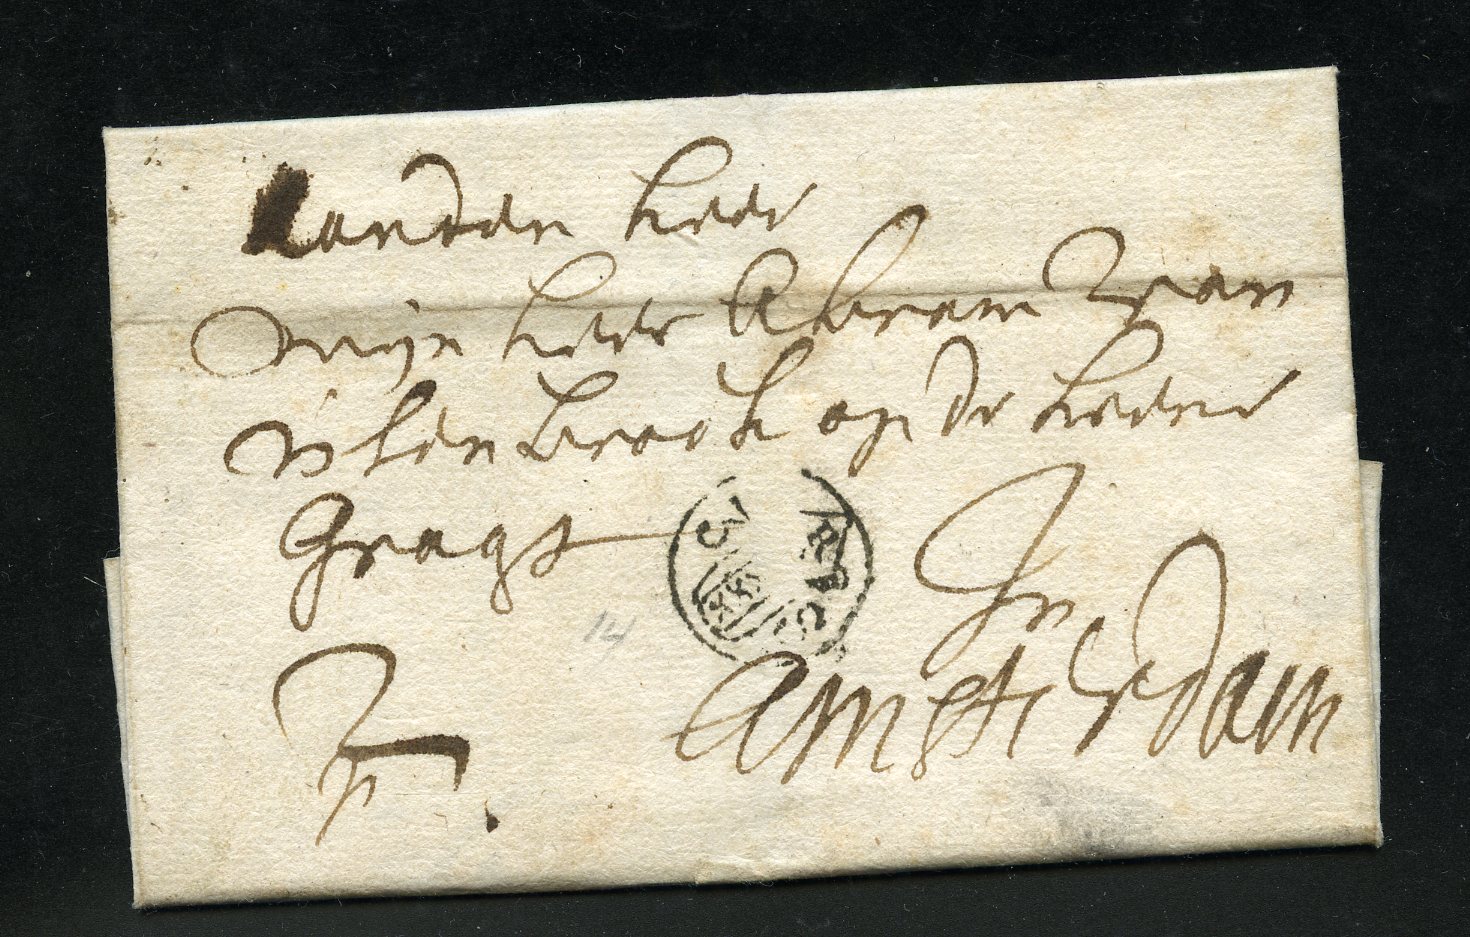 Aanden heer
mijn heer Abram Van
ijlen broek op de heere
Gragt
In
Amsterdam